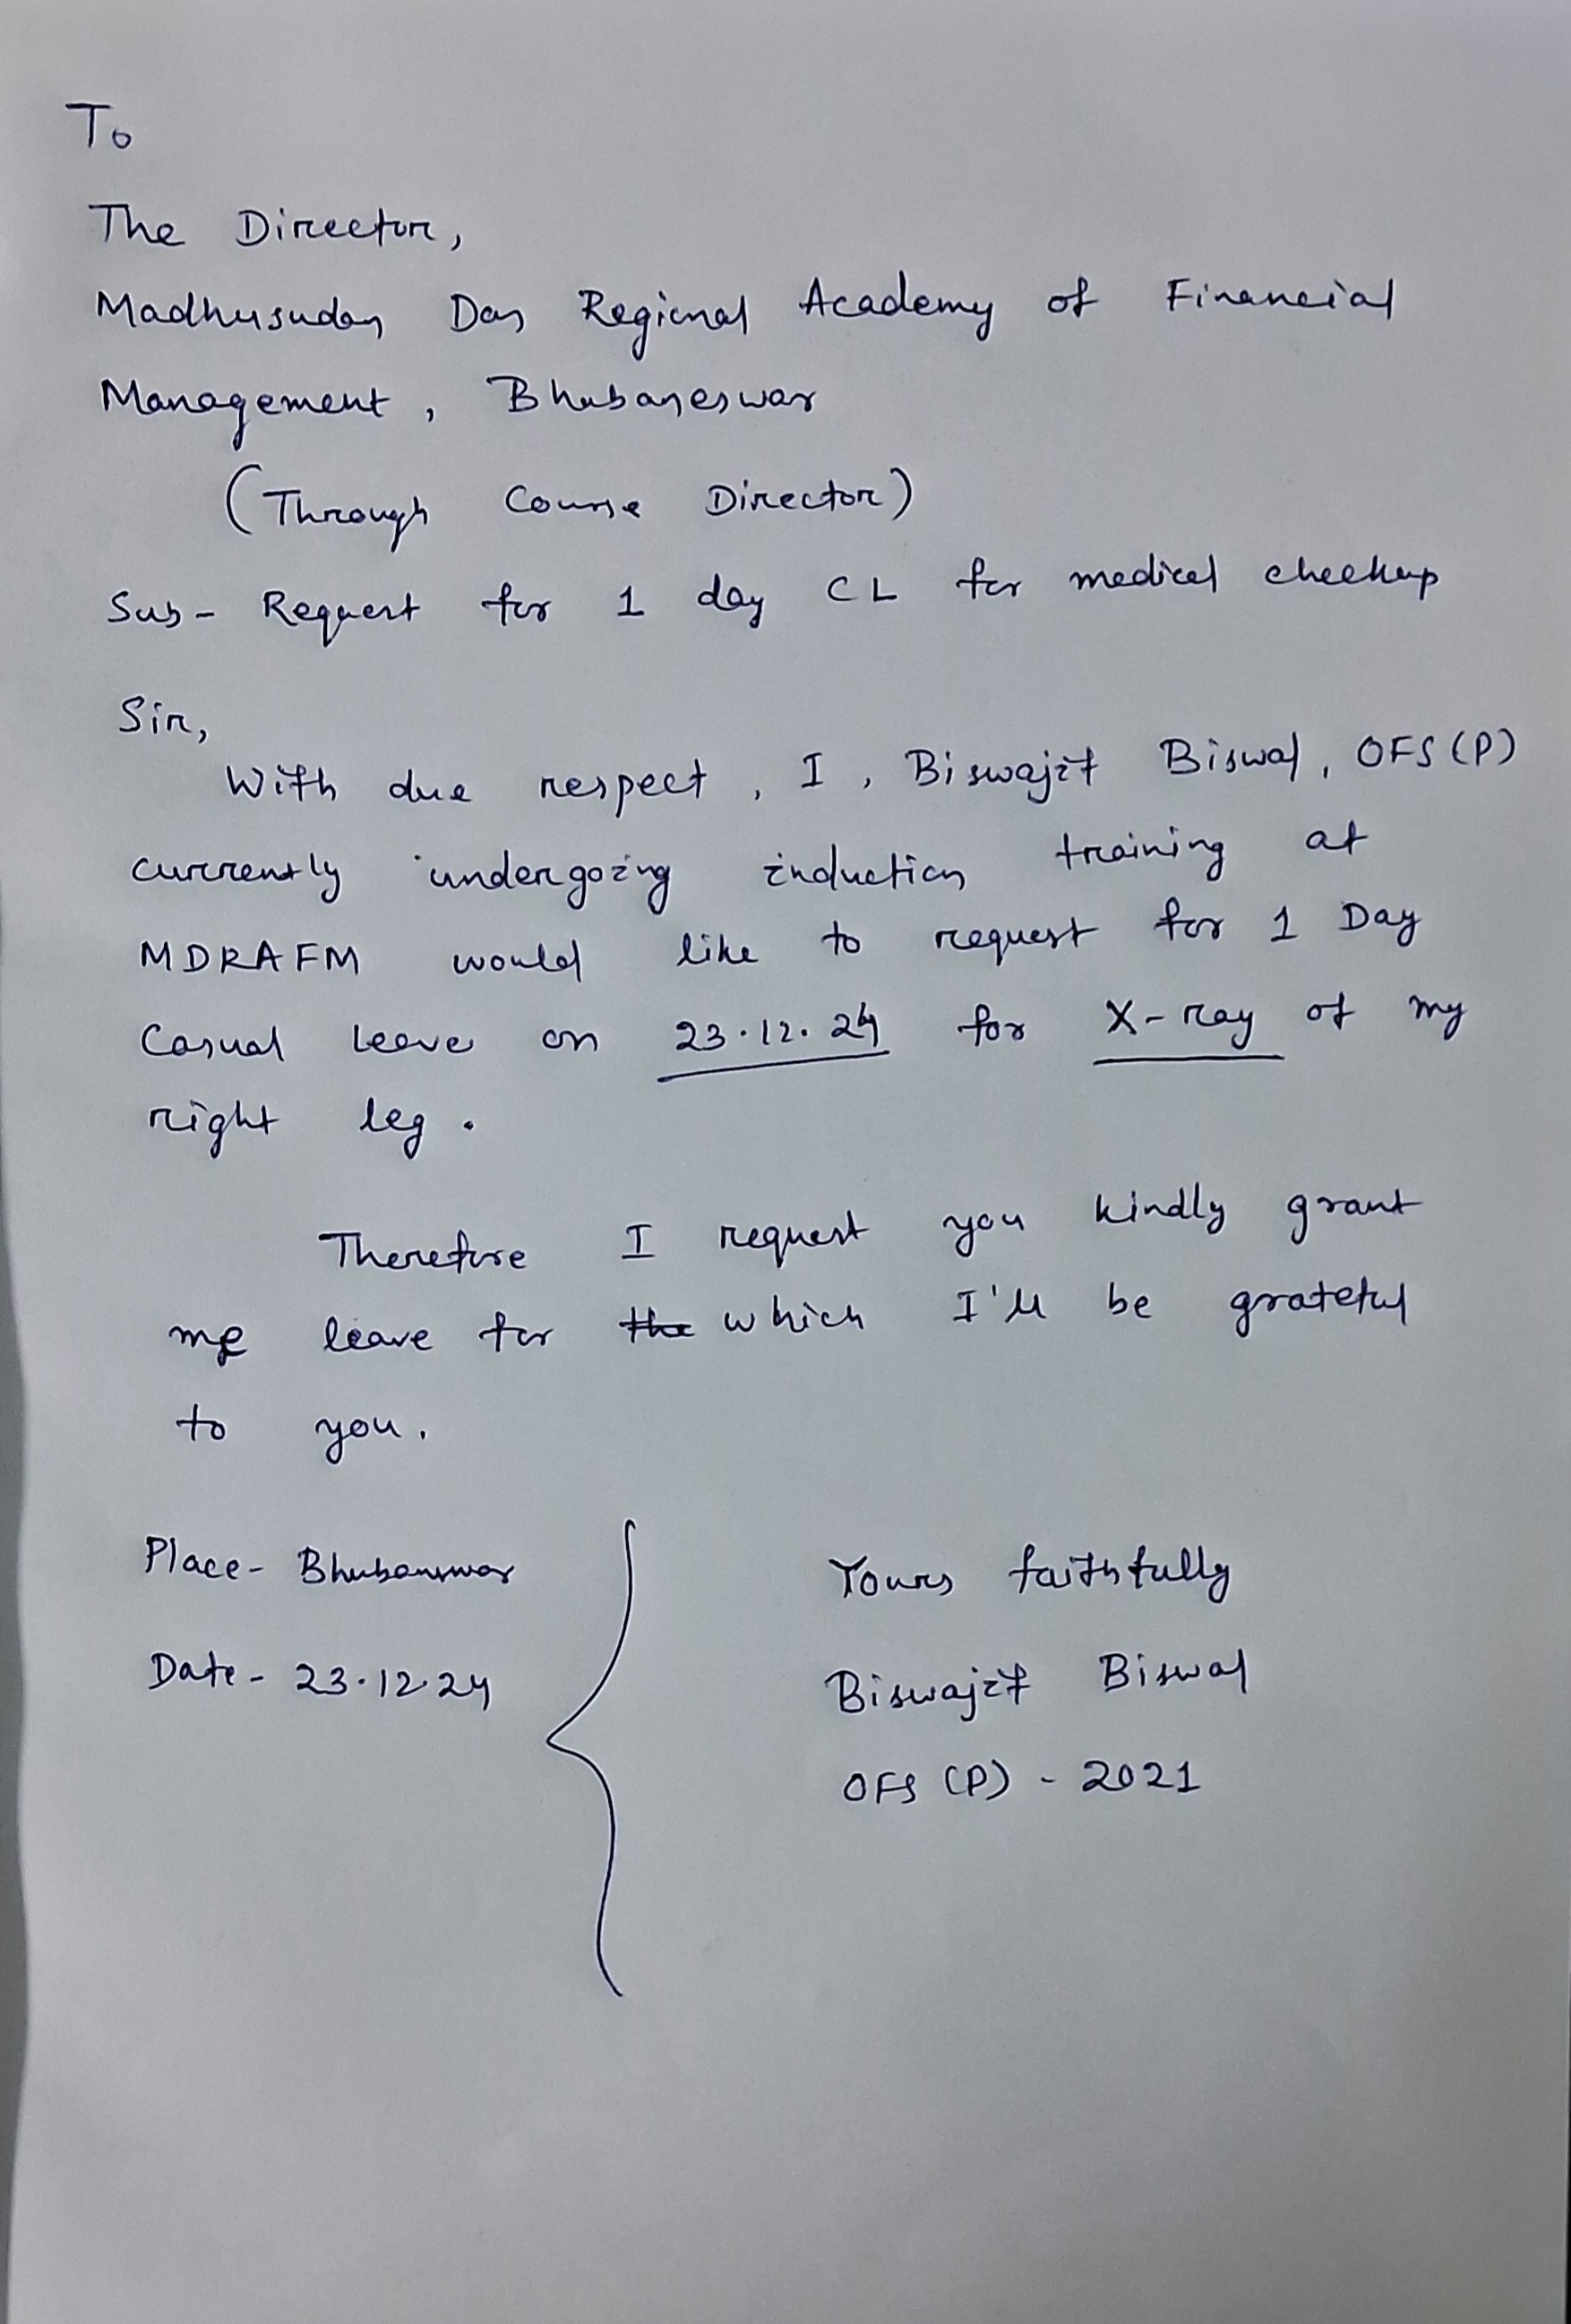 To
The Director,
Madhusudan Das Regional Academy of Financial
Management, Bhubaneswar
(Through Course Director)
Sub- Request for 1 day CL for medical checkup
Sir,
With due respect, I, Biswajit Biswal, OFS (P)
currently undergoing induction training at
MDRAFM would like to request for 1 Day
Casual leave on 23.12.24 for X-ray of my
right leg.
Therefore I request you kindly grant
me leave for the which I'll be grateful
to you.
Place- Bhubaneswar
Date- 23.12.24
Yours faithfully
Biswajit Biswal
OFS (P) - 2021